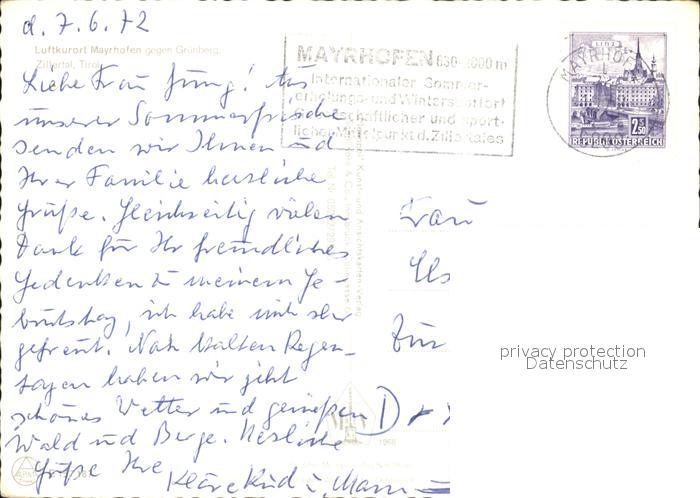 d. 7.6.72
Luftkurort Mayrhofen gegen Grünberg,
Zillertal, Tirol
Liebe Frau Jung! Aus
unserer Sommerfrische
senden wir Ihnen und
Ihrer Familie herzliche
Grüße. Gleichzeitig vielen
Dank für Ihr freundliches
Gedenken zu meinem Ge-
burtstag, ich habe mich sehr
gefreut. Nach kalten Regen-
tagen haben wir jetzt
schönes Wetter und genießen
Wald und Berge. Herzliche
Grüße Ihre
Kläre u. Mann
MAYRHOFEN 630-2000 m
Internationaler Sommer-
erholungs- und Wintersportort
gesellschaftlicher und sport-
licher Mittelpunkt d. Zillertales
LINZ
MAYRHOF
2.50
REPUBLIK ÖSTERREICH
Frau
Els
privacy protection
Datenschutz
1968